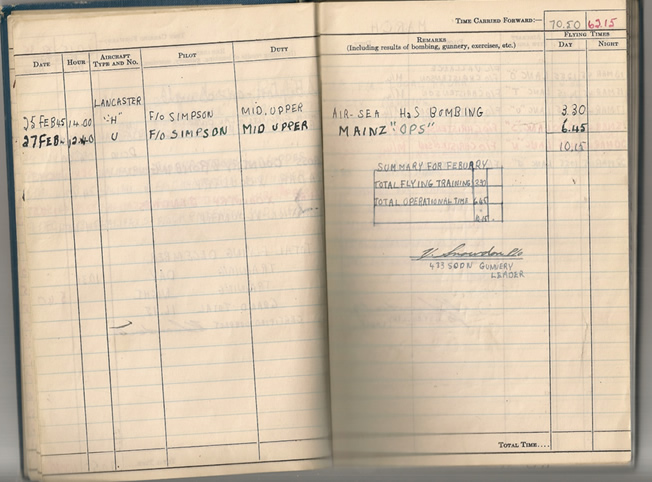 TIME CARRIED FORWARD:— 70.50 62.15
DATE HOUR AIRCRAFT TYPE AND NO. PILOT DUTY REMARKS (Including results of bombing, gunnery, exercises, etc.) FLYING TIMES DAY NIGHT
LANCASTER
25 FEB 45 14.00 "H" F/O SIMPSON MID. UPPER AIR-SEA H2S BOMBING 3.30
27 FEB U F/O SIMPSON MID UPPER MAINZ "OPS" 6.45
10.15
SUMMARY FOR FEBUARY
TOTAL FLYING TRAINING 3.30
TOTAL OPERATIONAL TIME 6.45
Snowdon
433 SQDN GUNNERY
LEADER
TOTAL TIME....